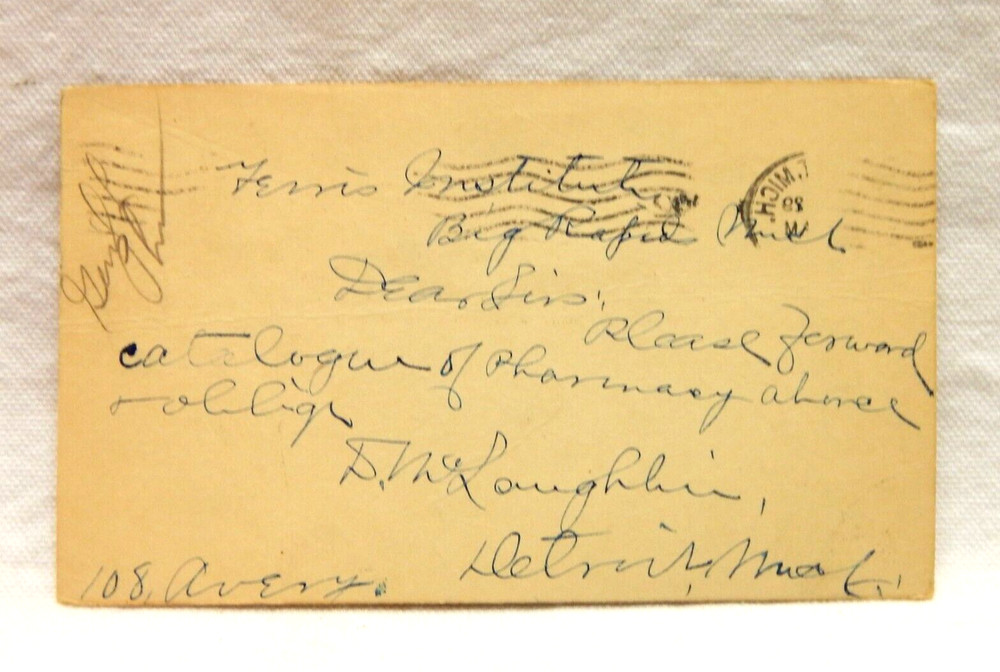 Ferris Institute
Big Rapids Mich
Dear Sirs,
Please forward
catalogue of Pharmacy at once
& oblige
D. McLoughlin,
Detroit, Mich.
108, Avery.
MICH.